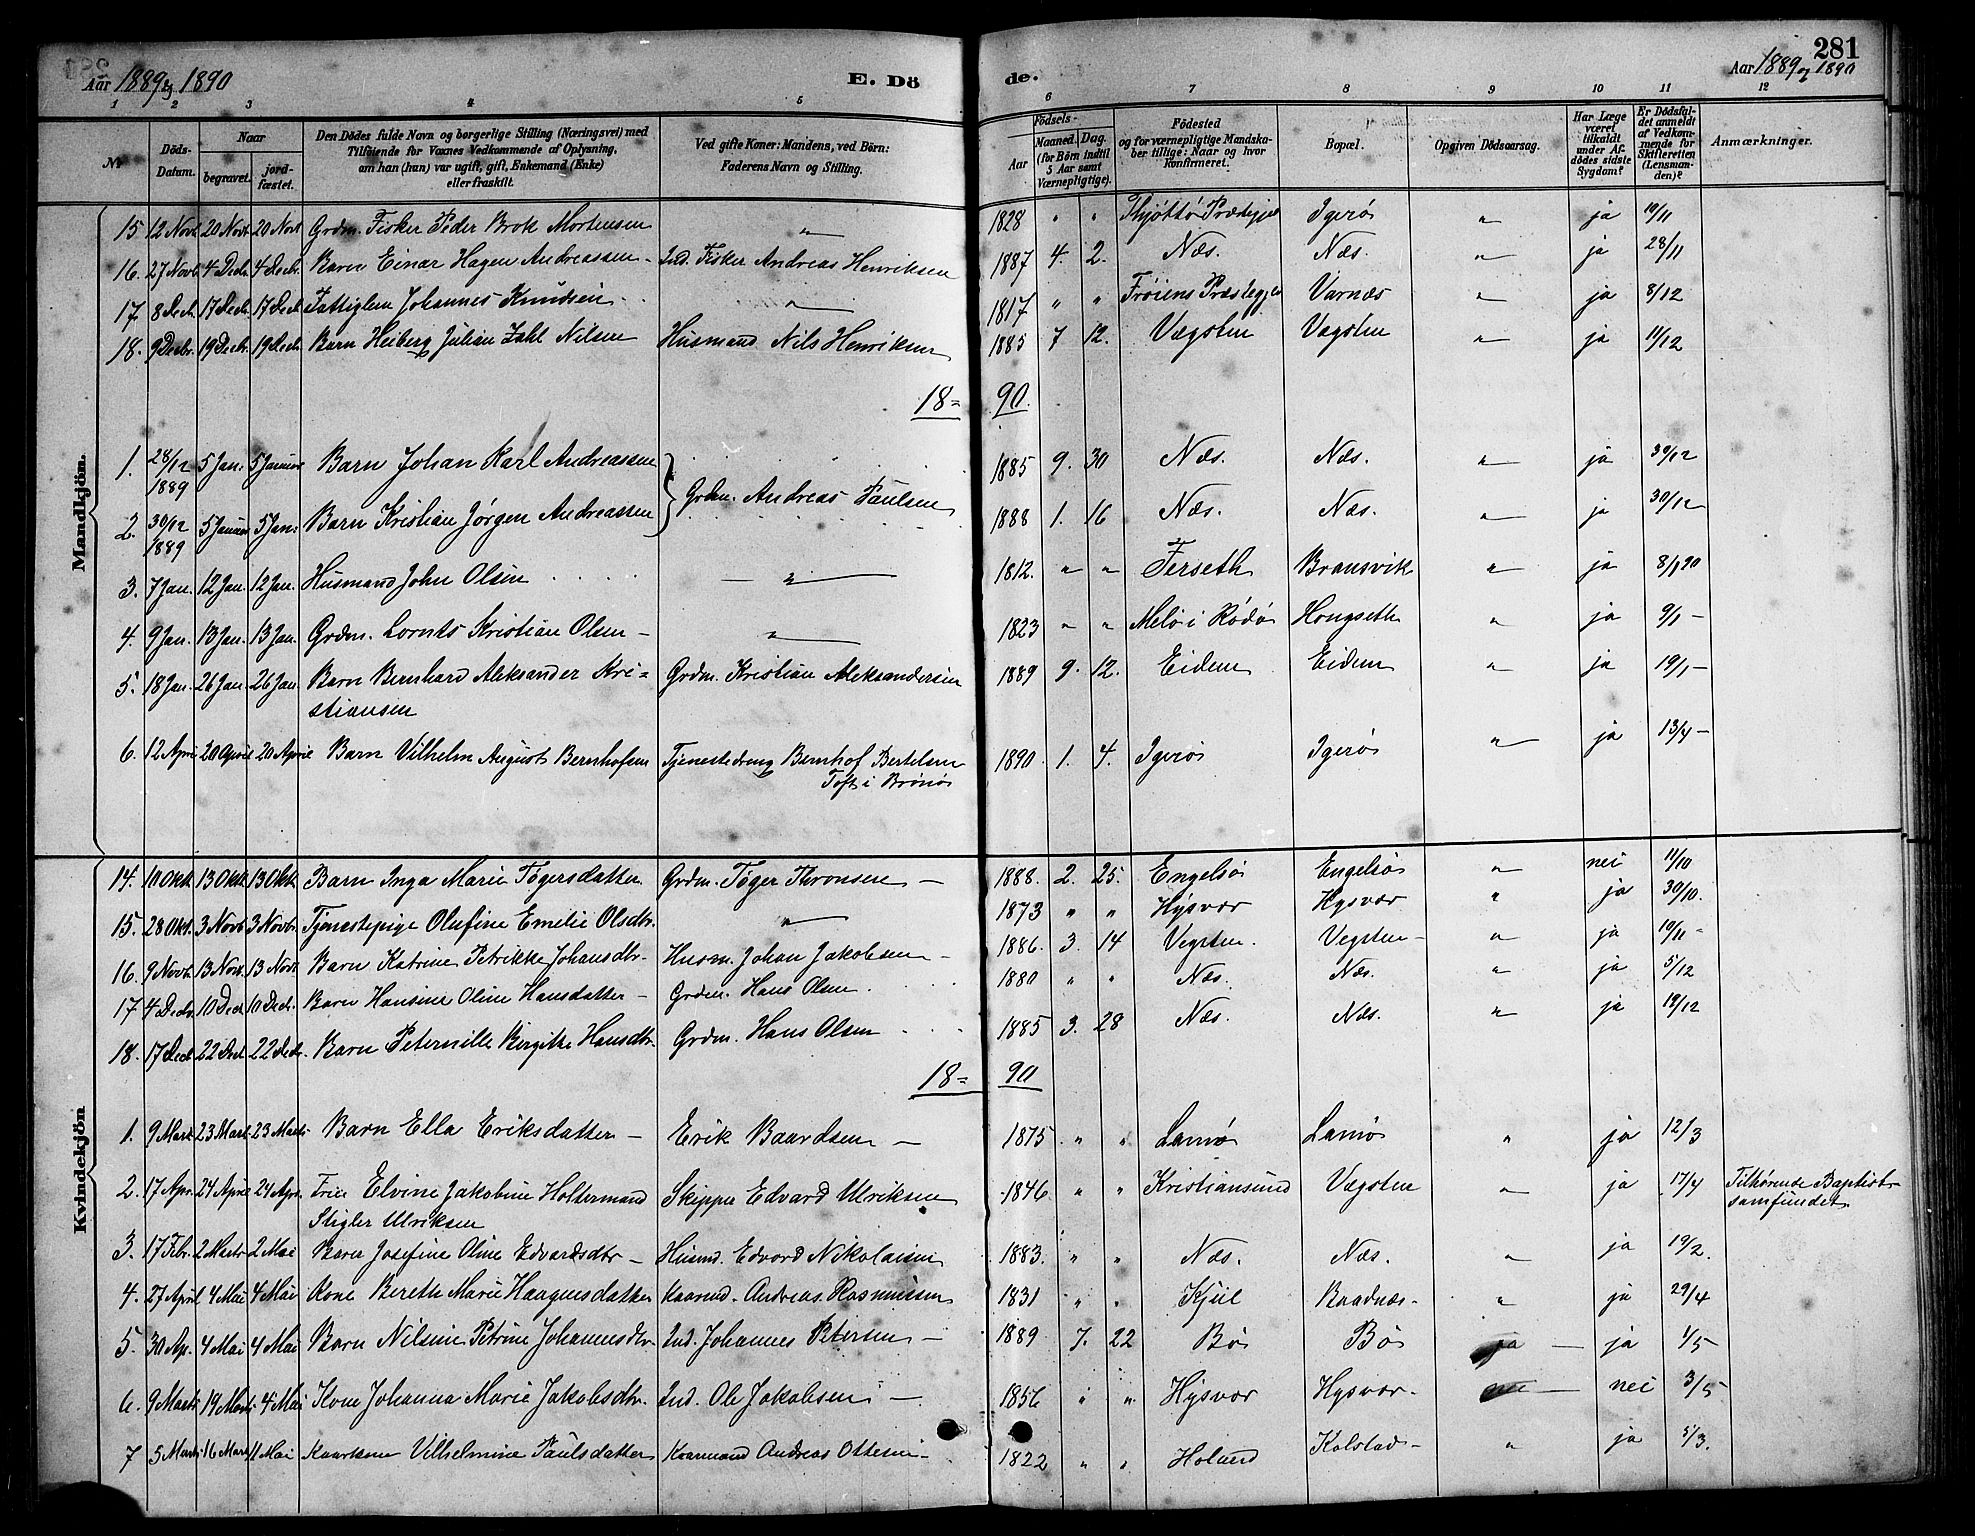 Aar 1889 og 1890
E. Dö
de.
Aar 1889 og 1890
281
1 2 3 4 5 6 7 8 9 10 11 12
Nr
Döds-Datum.
Naar
begravet.
jordfæstet.
Den Dödes fulde Navn og borgerlige Stilling (Næringsvei) med
Tilföiende for Voxnes Vedkommende af Oplysning,
om han (hun) var ugift, gift, Enkemand (Enke)
eller fraskilt.
Ved gifte Koner: Mandens, ved Börn:
Faderens Navn og Stilling.
Födsels-
Aar
Maaned. Dag.
(for Börn indtil
5 Aar samt
Værnepligtige).
Födested
og for værnepligtige Mandska-
ber tillige: Naar og hvor
konfirmeret.
Bopæl.
Opgiven Dödsaarsag.
Har Læge
været
tilkaldt
under Af-
dödes sidste
Sygdom?
Er Dödsfal-
det anmeldt
af Vedkom-
mende for
Skifteretten
(Lensman-
den)?
Anmærkninger.
Mandkjön.
15 12 Novb. 20 Novb. 20 Novb. Grdm. Fisker Peder Brok Mortensen " 1828 " " Thjöttö Præstegjel Igerö " ja 19/11
16. 27 Novb. 4 Decb. 4 Decbr. Barn Einar Hagen Andreassen - Ind. Fisker Andreas Henriksen 1887 4. 2. Næs. Næs. " ja 28/11
17 8 Decb. 17 Decb. 17 Decb. Fattiglem Johannes Knudsen " 1817 " " Fröiens Præstegjel Varnæs " ja 8/12
18. 9 Decbr. 19 Decbr. 19 Decb. Barn Heiberg Julian Zahl Nilsen Husmand Nils Henriksen 1885 7 12. Vægsten Vægsten " ja 11/12
18 = 90.
1. 28/12 1889 5 Jan. 5 Januar Barn Johan Karl Andreassen } Grdm. Andreas Paulsen 1885 9. 30 Næs. Næs. " ja 30/12
2. 30/12 1889 5 Januar 5 Jan. Barn Kristian Jörgen Andreassen 1888 1. 16 Næs. Næs. " ja 30/12
3. 7 Jan. 12 Jan. 12 Jan. Husmand John Olsen " 1812. " " Ferseth Bransvik " ja 8/1 90
4. 9 Jan. 13 Jan. 13 Jan. Grdm. Lornts Kristian Olsen - " 1823 " " Melö i Rödö Hongseth " ja 9/1 -
5. 18 Jan. 26 Jan. 26 Jan Barn Bernhard Aleksander Kri-
stiansen Grdm. Kristian Aleksandersen 1889 9. 12. Eidem Eidem " ja 19/1 -
6. 12 April 20 April 20 April Barn Vilhelm August Bernhofsen Tjenestedreng Bernhof Bertelsen
Toft i Brönö 1890 1. 4. Igerö Igerö " ja 13/4 -
Kvindekjön
14. 10 Okt. 13 Okt. 13 Okt. Barn Inga Marie Tögersdatter Grdm. Töger Thronsen - 1888. 2. 25. Engelsö Engelsö " nei 11/10
15. 28 Okt. 3 Novb. 3 Novbr. Tjenestepige Olufine Emelie Olsdtr. " 1873 " " Hysvær Hysvær " ja 30/10.
16 9 Novb. 13 Nov. 13 Novb Barn Katrine Petrikke Johansdtr. Husm. Johan Jakobsen - 1886. 3. 14 Vegsten. Vegsten - " ja 19/11 -
17 4 Decb. 10 Decb 10 Decb. Barn Hansine Oline Hansdatter - Grdm. Hans Olsen . 1880 " " Næs. Næs. " ja 5/12
18. 17 Decb 22 Decb 22 Decb. Barn Peternille Birgitte Hansdtr. Grdm. Hans Olsen 1885 3. 28 Næs. Næs. " ja 19/12
18 = 90
1. 9 Marts 23 Marts 23 Marts Barn Ella Eriksdatter - Erik Baardsen - 1875 " " Lamö Lamö " ja 12/3
2. 17 Apr. 24 April 24 Apr. Frue Elvine Jakobine Holtermand
Stigler Ulriksen Skipper Edvard Ulriksen 1846 " " Kristiansund Vægsten " ja 17/4 Tilhörende Baptist-
samfundet.
3. 17 Febr. 2 Marts 2 Mai Barn Josefine Oline Edvardsdtr - Husmd. Edvard Nikolaisen 1883. " " Næs. Næs. " ja 19/2.
4. 27 April 4 Mai 4 Mai Kone Bereth Marie Haagensdatter Kaarmd. Andreas Rasmussen 1831 " " Kjul Baadnæs. " ja 29/4
5 30 Ap. 4 Mai 4 Mai Barn Nilsine Petrine Johannesdtr. Ind. Johannes Petersen - 1889 7. 22 Bö Bö ja - ja 1/5
6. 9 Marts 19 Marts 4 Mai Kone Johanna Marie Jakobsdtr. Ind. Ole Jakobsen - 1856 " " Hysvær Hysvær. - nei 3/5
7 5 Marts 16 Marts 11 Mai Kaarkone Vilhelmine Paulsdatter Kaarmand Andreas Ottesen - 1822 " " Holand Kolstad - " ja 5/3.